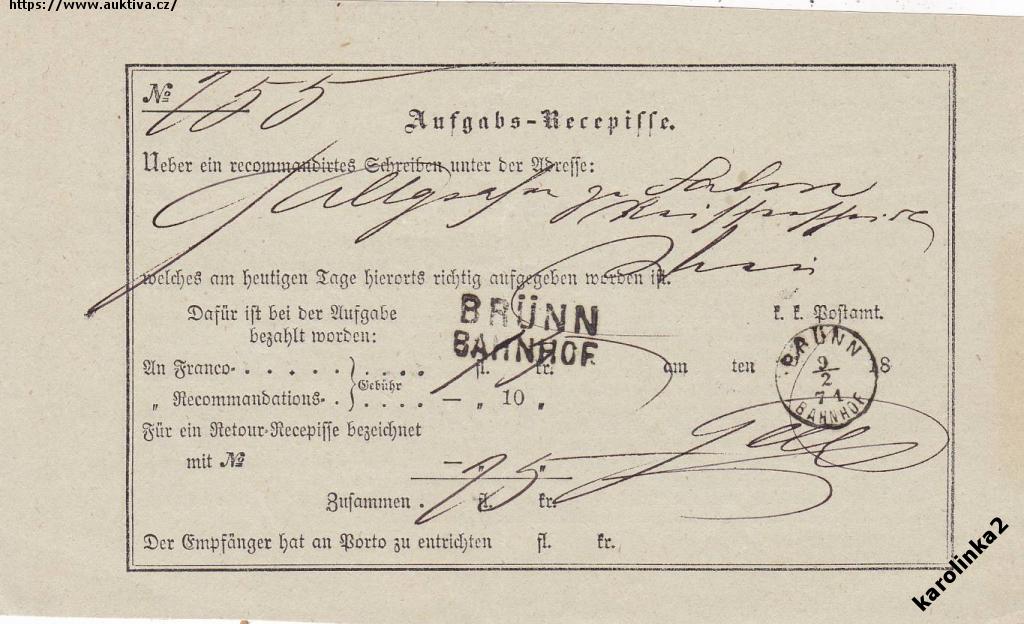 https://www.auktiva.cz/
№ 155
Aufgabs-Recepisse.
Ueber ein recommandirtes Schreiben unter der Adresse:
zu Salm
welches am heutigen Tage hierorts richtig aufgegeben worden ist.
Dafür ist bei der Aufgabe
bezahlt worden:
BRÜNN
BAHNHOF
k. k. Postamt.
An Franco- . . . . . . . . . . fl. kr.
am ten 18
Gebühr
„ Recommandations- . . . . . — „ 10 „
BRÜNN
9/2
71
BAHNHOF
Für ein Retour-Recepisse bezeichnet
mit № — „ „
Zusammen . fl. 15 kr.
Der Empfänger hat an Porto zu entrichten fl. kr.
karolinka2